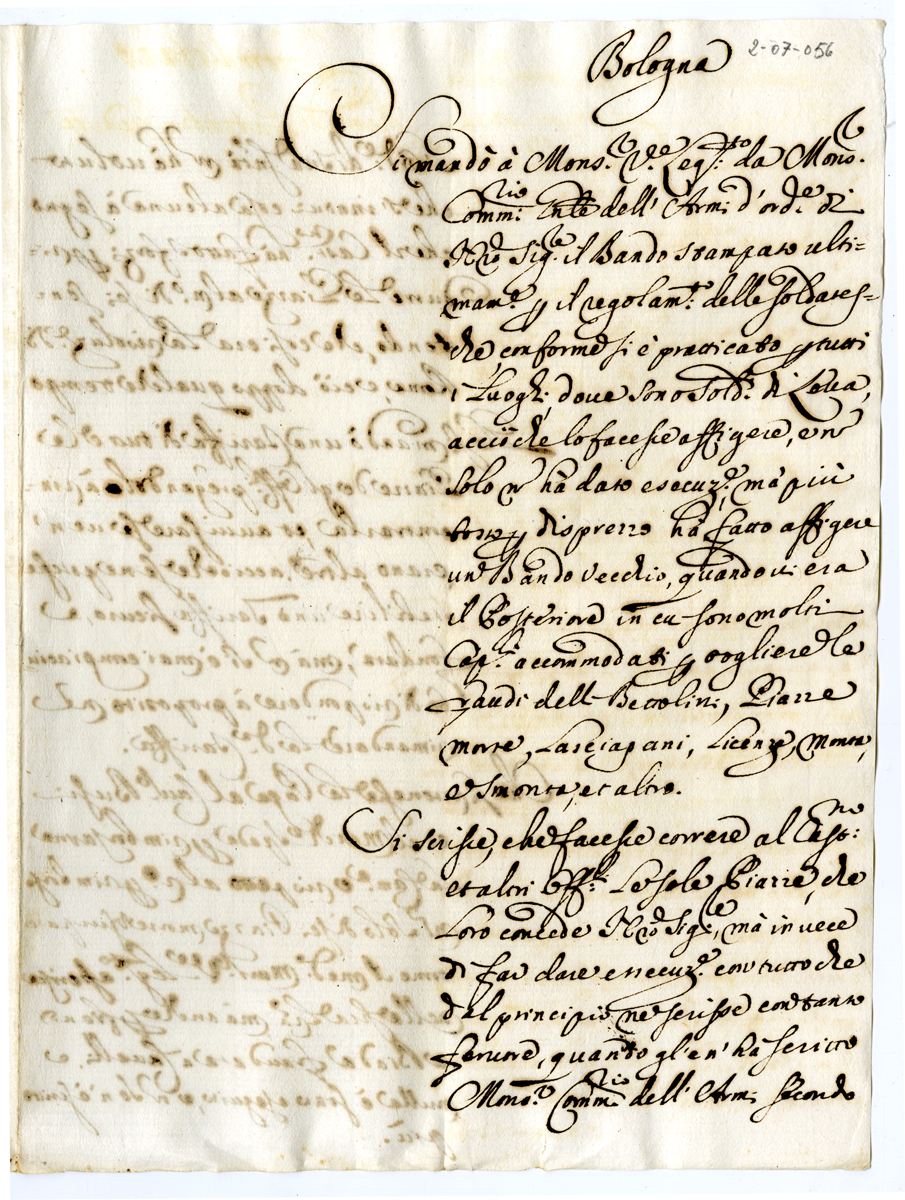 2-07-056
Bologna
Si mandò à Mons.r V.e Leg.to da Mons.r
Comm.rio dell' Armi d' ord.e di
N'ro Sig.re il Bando stampato ulti=
mam.e p il regolam.to delle soldates=
che, conforme si è pratticato p tutti
i Luoghi, dove sono Sold.i di Leva,
acciò che lo facesse affigere, e n̄
solo n̄ hà dato esecuz.e, mà più
tosto p disprezzo hà fatto affigere
un Bando vecchio, quando vi era
il Posteriore in cui sono molti
Cap.li accommodati p togliere le
fraudi delli Bettolini, Piazze
morte, Lasciapani, Licenze, Monta,
e Smonta, et altro.
Si scrisse, che facesse correre al Cast.no
et altri Off.li Le sole Piazze, che
Loro concede N'ro Sig.re, mà in vece
di far dare essecuz.e con tutto che
dal principio ne scrisse con tanto
fervore, quanto gl'e n' hà scritto
Mons.r Comm.rio dell' Armi secondo